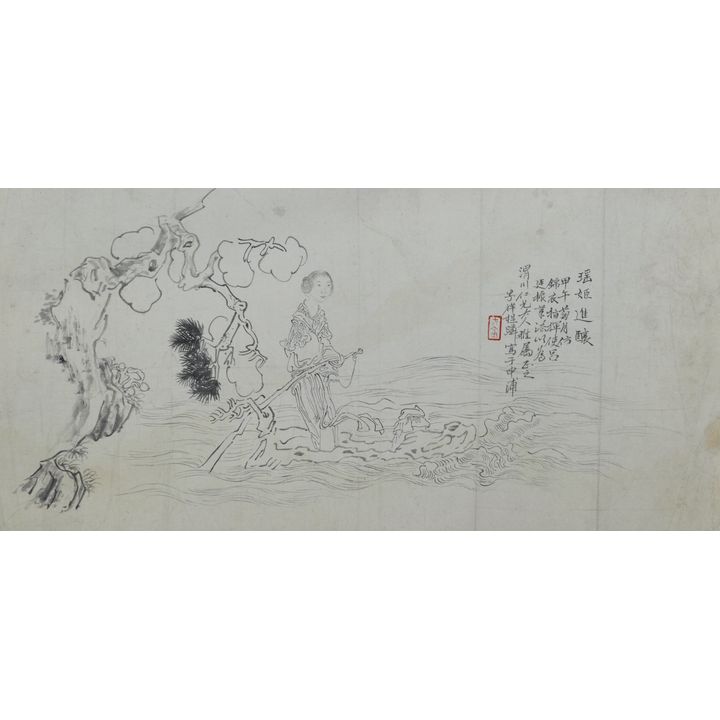 瑶姬進釀
甲午菊月仿
錦衣指揮使呂
廷振筆法以為
渭川仁兄大人雅屬正之
寫于申浦